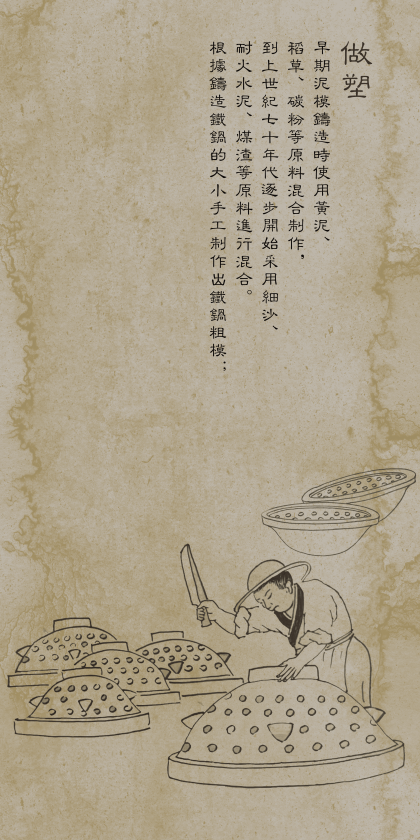 做塑
早期泥模鑄造時使用黃泥、
稻草、碳粉等原料混合制作，
到上世紀七十年代逐步開始采用細沙、
耐火水泥、煤渣等原料進行混合。
根據鑄造鐵鍋的大小手工制作出鐵鍋粗模；